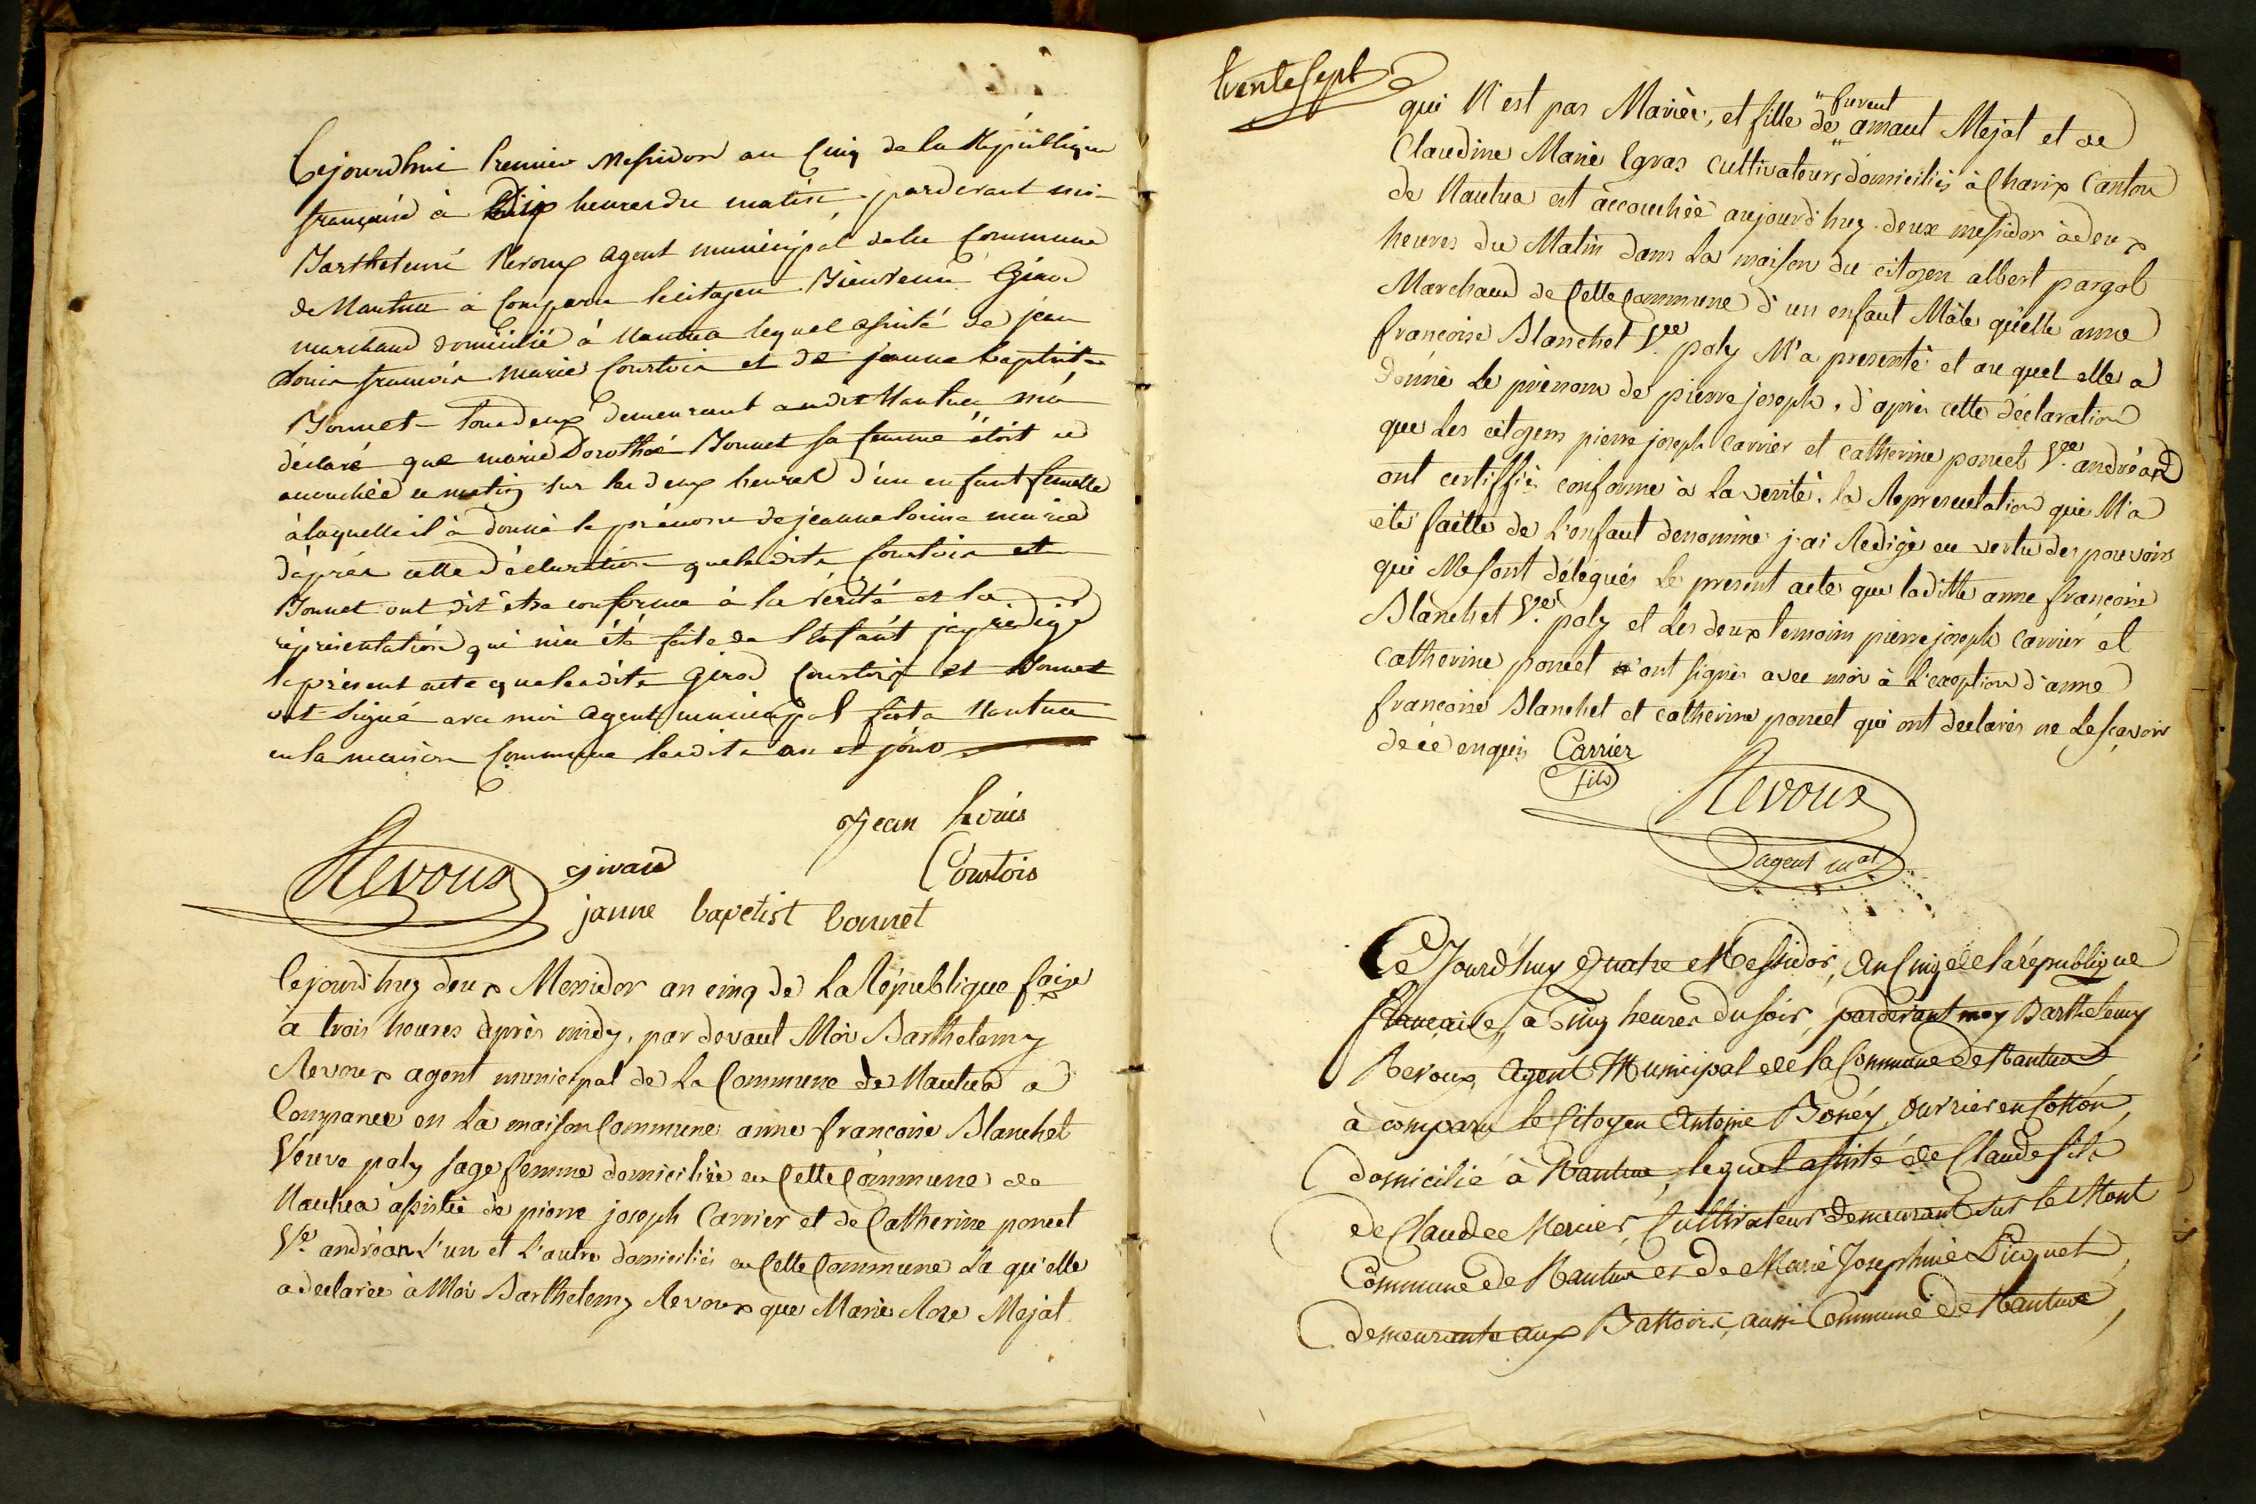 Cejourdhui Premier Messidor an Cinq de la République
française à Dix heures du matin pardevant moi
Barthelemi Revoux agent municipal de la Commune
de Nantua à Comparu le citoyen Bienvenu Girod
marchand domicilié à Nantua lequel assisté de jean
Louis françois marie Courtois et de jeanne baptiste
Bonnet tous deux demeurant audit Nantua m'a
déclaré que marie Dorothée Bonnet sa femme étoit
accouchée ce matin sur les deux heures d'un enfant femelle
à laquelle il à donné le prénom de jeanne louise marie
d'après cette déclaration que lesdits Courtois et
Bonnet ont dit etre conforme à la vérité et la
représentation qui m'a été faite de l'enfant j'ay rédigé
le présent acte que lesdits Girod Courtois et Bonnet
ont signé avec moi agent municipal fait a Nantua
en la maison Commune lesdits an et jour
Jean Louis
Revoux girod Courtois
janne baptist bonnet
Cejourd'huy deux Messidor an cinq de La République fçaise
à trois heures après midy, par devant Moi Barthelemy
Revoux agent municipal de La Commune de Nantua a
Comparue en La maison Commune anne francoise Blanchet
Veuve paly sage femme domiciliée en Cette Commune de
Nantua assistée de pierre joseph Carrier et de Catherine poncet
Ve. andréan l'un et L'autre domiciliés en Cette Commune La qu'elle
a declarée à Moi Barthelemy Revoux que Marie Roze Mejat
trente sept
qui N'est pas Mariée, et fille de " furent " amant Mejat et de
Claudine Marie Egras cultivateurs domiciliés à Charix Canton
de Nantua est accouchée aujourd'huy deux messidor à deux
heures du Matin dans La maison du citoyen albert pargol
Marchand de Cette Commune d'un enfant Mâle qu'elle anne
francoise Blanchet Vee. paly M'a presenté et au quel elle a
Donné Le prénom de pierre joseph, d'après cette déclaration
que Les citoyens pierre joseph carrier et catherine poncet Vee. andréan
ont certiffié conforme à La verité. la Representation qui M'a
été faitte de L'enfant denommé j'ai Redigé en vertu des pouvoirs
qui Me sont délégués Le present acte que laditte anne francoise
Blanchet Ve. paly et Les deux temoins pierre joseph carrier et
catherine poncet ont signés avec moi à L'exception d'anne
francoise Blanchet et catherine poncet qui ont declarés ne Le sçavoir
de ce enquis Carrier
fils
Revoux
agent mal
Ce Jourd'huy Quatre Messidor, an Cinq de la république
française, à Cinq heures du soir, pardevant moy Barthelemy
Revoux, agent Municipal de la Commune de Nantua
à comparu le Citoyen Antoine Bonéy, ouvrier en Cotton,
domicilié à Nantua, lequel assisté de Claude fils
de Claude Mercier, Cultivateur demeurant sur le Mont
Commune de Nantua et de Marie Josephine Picquet,
demeurante aux Battoirs, aussi Commune de Nantua,